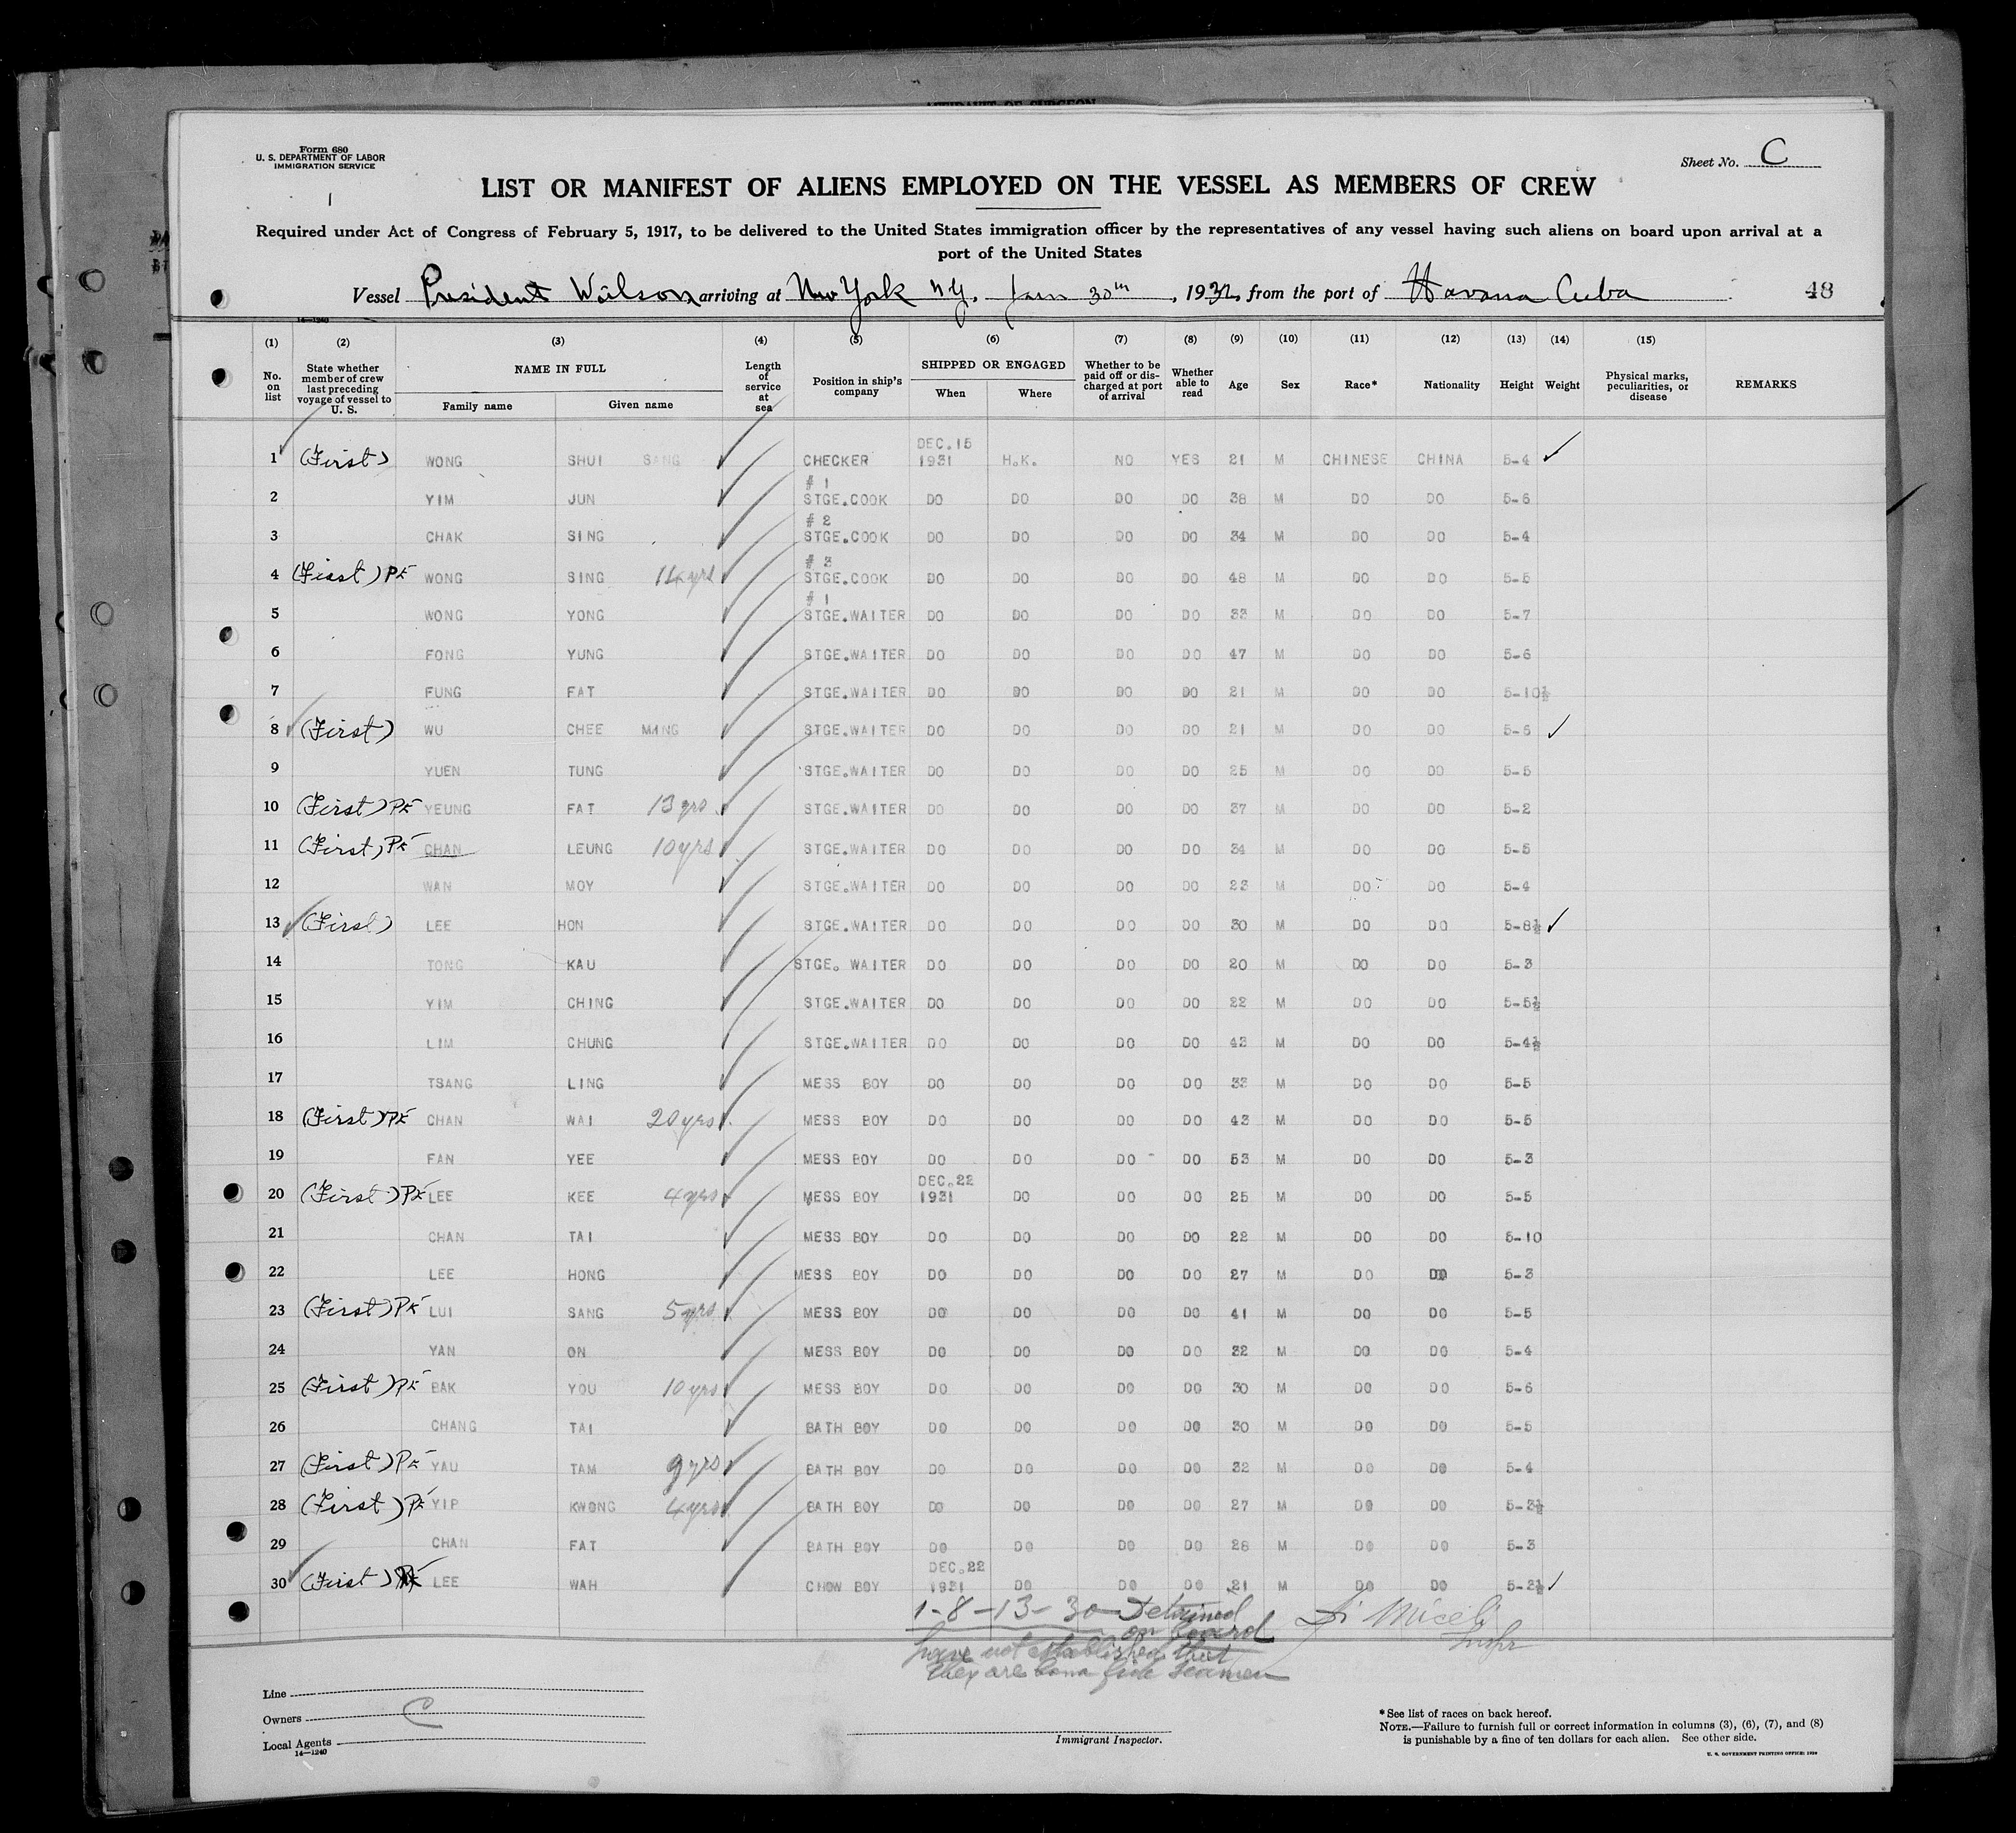 AFFIDAVIT OF SURGEON
Form 680
U. S. DEPARTMENT OF LABOR
IMMIGRATION SERVICE
Sheet No. C
1
LIST OR MANIFEST OF ALIENS EMPLOYED ON THE VESSEL AS MEMBERS OF CREW
Required under Act of Congress of February 5, 1917, to be delivered to the United States immigration officer by the representatives of any vessel having such aliens on board upon arrival at a
port of the United States
Vessel President Wilson arriving at New York N.Y. Jan 30th, 1932, from the port of Havana Cuba 48
14—1240
(1) (2) (3) (4) (5) (6) (7) (8) (9) (10) (11) (12) (13) (14) (15)
No. on list State whether member of crew last preceding voyage of vessel to U. S. NAME IN FULL Family name Given name Length of service at sea Position in ship's company SHIPPED OR ENGAGED When Where Whether to be paid off or discharged at port of arrival Whether able to read Age Sex Race* Nationality Height Weight Physical marks, peculiarities, or disease REMARKS
1 (First) WONG SHUI SANG CHECKER DEC.15 1931 H.K. NO YES 21 M CHINESE CHINA 5-4
2 YIM JUN # 1 STGE.COOK DO DO DO DO 38 M DO DO 5-6
3 CHAK SING # 2 STGE.COOK DO DO DO DO 34 M DO DO 5-4
4 (First) PE WONG SING 14 yrs # 3 STGE.COOK DO DO DO DO 48 M DO DO 5-5
5 WONG YONG # 1 STGE.WAITER DO DO DO DO 33 M DO DO 5-7
6 FONG YUNG STGE.WAITER DO DO DO DO 47 M DO DO 5-6
7 FUNG FAT STGE.WAITER DO DO DO DO 21 M DO DO 5-10½
8 (First) WU CHEE MING STGE.WAITER DO DO DO DO 21 M DO DO 5-6
9 YUEN TUNG STGE.WAITER DO DO DO DO 25 M DO DO 5-5
10 (First) PE YEUNG FAT 13 yrs STGE.WAITER DO DO DO DO 37 M DO DO 5-2
11 (First) PE CHAN LEUNG 10 yrs STGE.WAITER DO DO DO DO 34 M DO DO 5-5
12 WAN MOY STGE.WAITER DO DO DO DO 23 M DO DO 5-4
13 (First) LEE HON STGE.WAITER DO DO DO DO 30 M DO DO 5-8½
14 TONG KAU STGE. WAITER DO DO DO DO 20 M DO DO 5-3
15 YIM CHING STGE.WAITER DO DO DO DO 22 M DO DO 5-5½
16 LIM CHUNG STGE.WAITER DO DO DO DO 43 M DO DO 5-4½
17 TSANG LING MESS BOY DO DO DO DO 33 M DO DO 5-5
18 (First) PE CHAN WAI 20 yrs MESS BOY DO DO DO DO 43 M DO DO 5-5
19 FAN YEE MESS BOY DO DO DO DO 53 M DO DO 5-3
20 (First) PE LEE KEE 4 yrs MESS BOY DEC.22 1931 DO DO DO 25 M DO DO 5-5
21 CHAN TAI MESS BOY DO DO DO DO 22 M DO DO 5-10
22 LEE HONG MESS BOY DO DO DO DO 27 M DO DO 5-3
23 (First) PE LUI SANG 5 yrs MESS BOY DO DO DO DO 41 M DO DO 5-5
24 YAN ON MESS BOY DO DO DO DO 32 M DO DO 5-4
25 (First) PE BAK YOU 10 yrs MESS BOY DO DO DO DO 30 M DO DO 5-6
26 CHANG TAI BATH BOY DO DO DO DO 30 M DO DO 5-5
27 (First) PE YAU TAM 9 yrs BATH BOY DO DO DO DO 32 M DO DO 5-4
28 (First) PE YIP KWONG 4 yrs BATH BOY DO DO DO DO 27 M DO DO 5-3½
29 CHAN FAT BATH BOY DO DO DO DO 28 M DO DO 5-3
30 (First) LEE WAH CHOW BOY DEC.22 1931 DO DO DO 21 M DO DO 5-2½
1-8-13-30 Detained
on board
have not established that
they are bona fide seamen
Di Miceli
Inspr
Line
Owners C
Local Agents
14—1240
Immigrant Inspector.
*See list of races on back hereof.
NOTE.—Failure to furnish full or correct information in columns (3), (6), (7), and (8)
is punishable by a fine of ten dollars for each alien. See other side.
U. S. GOVERNMENT PRINTING OFFICE: 1929